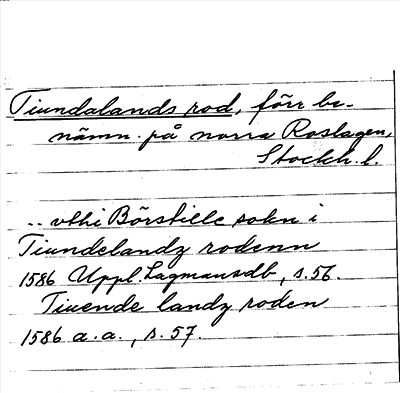 Tiundalands rod, förr be-
nämn. på norra Roslagen,
Stockh. l.
.. vthi Börstille sokn i
Tiundelandz rodenn
1586 Uppl. Lagmansdb, s. 56.
Tiuende landz roden
1586 a. a., s. 57.